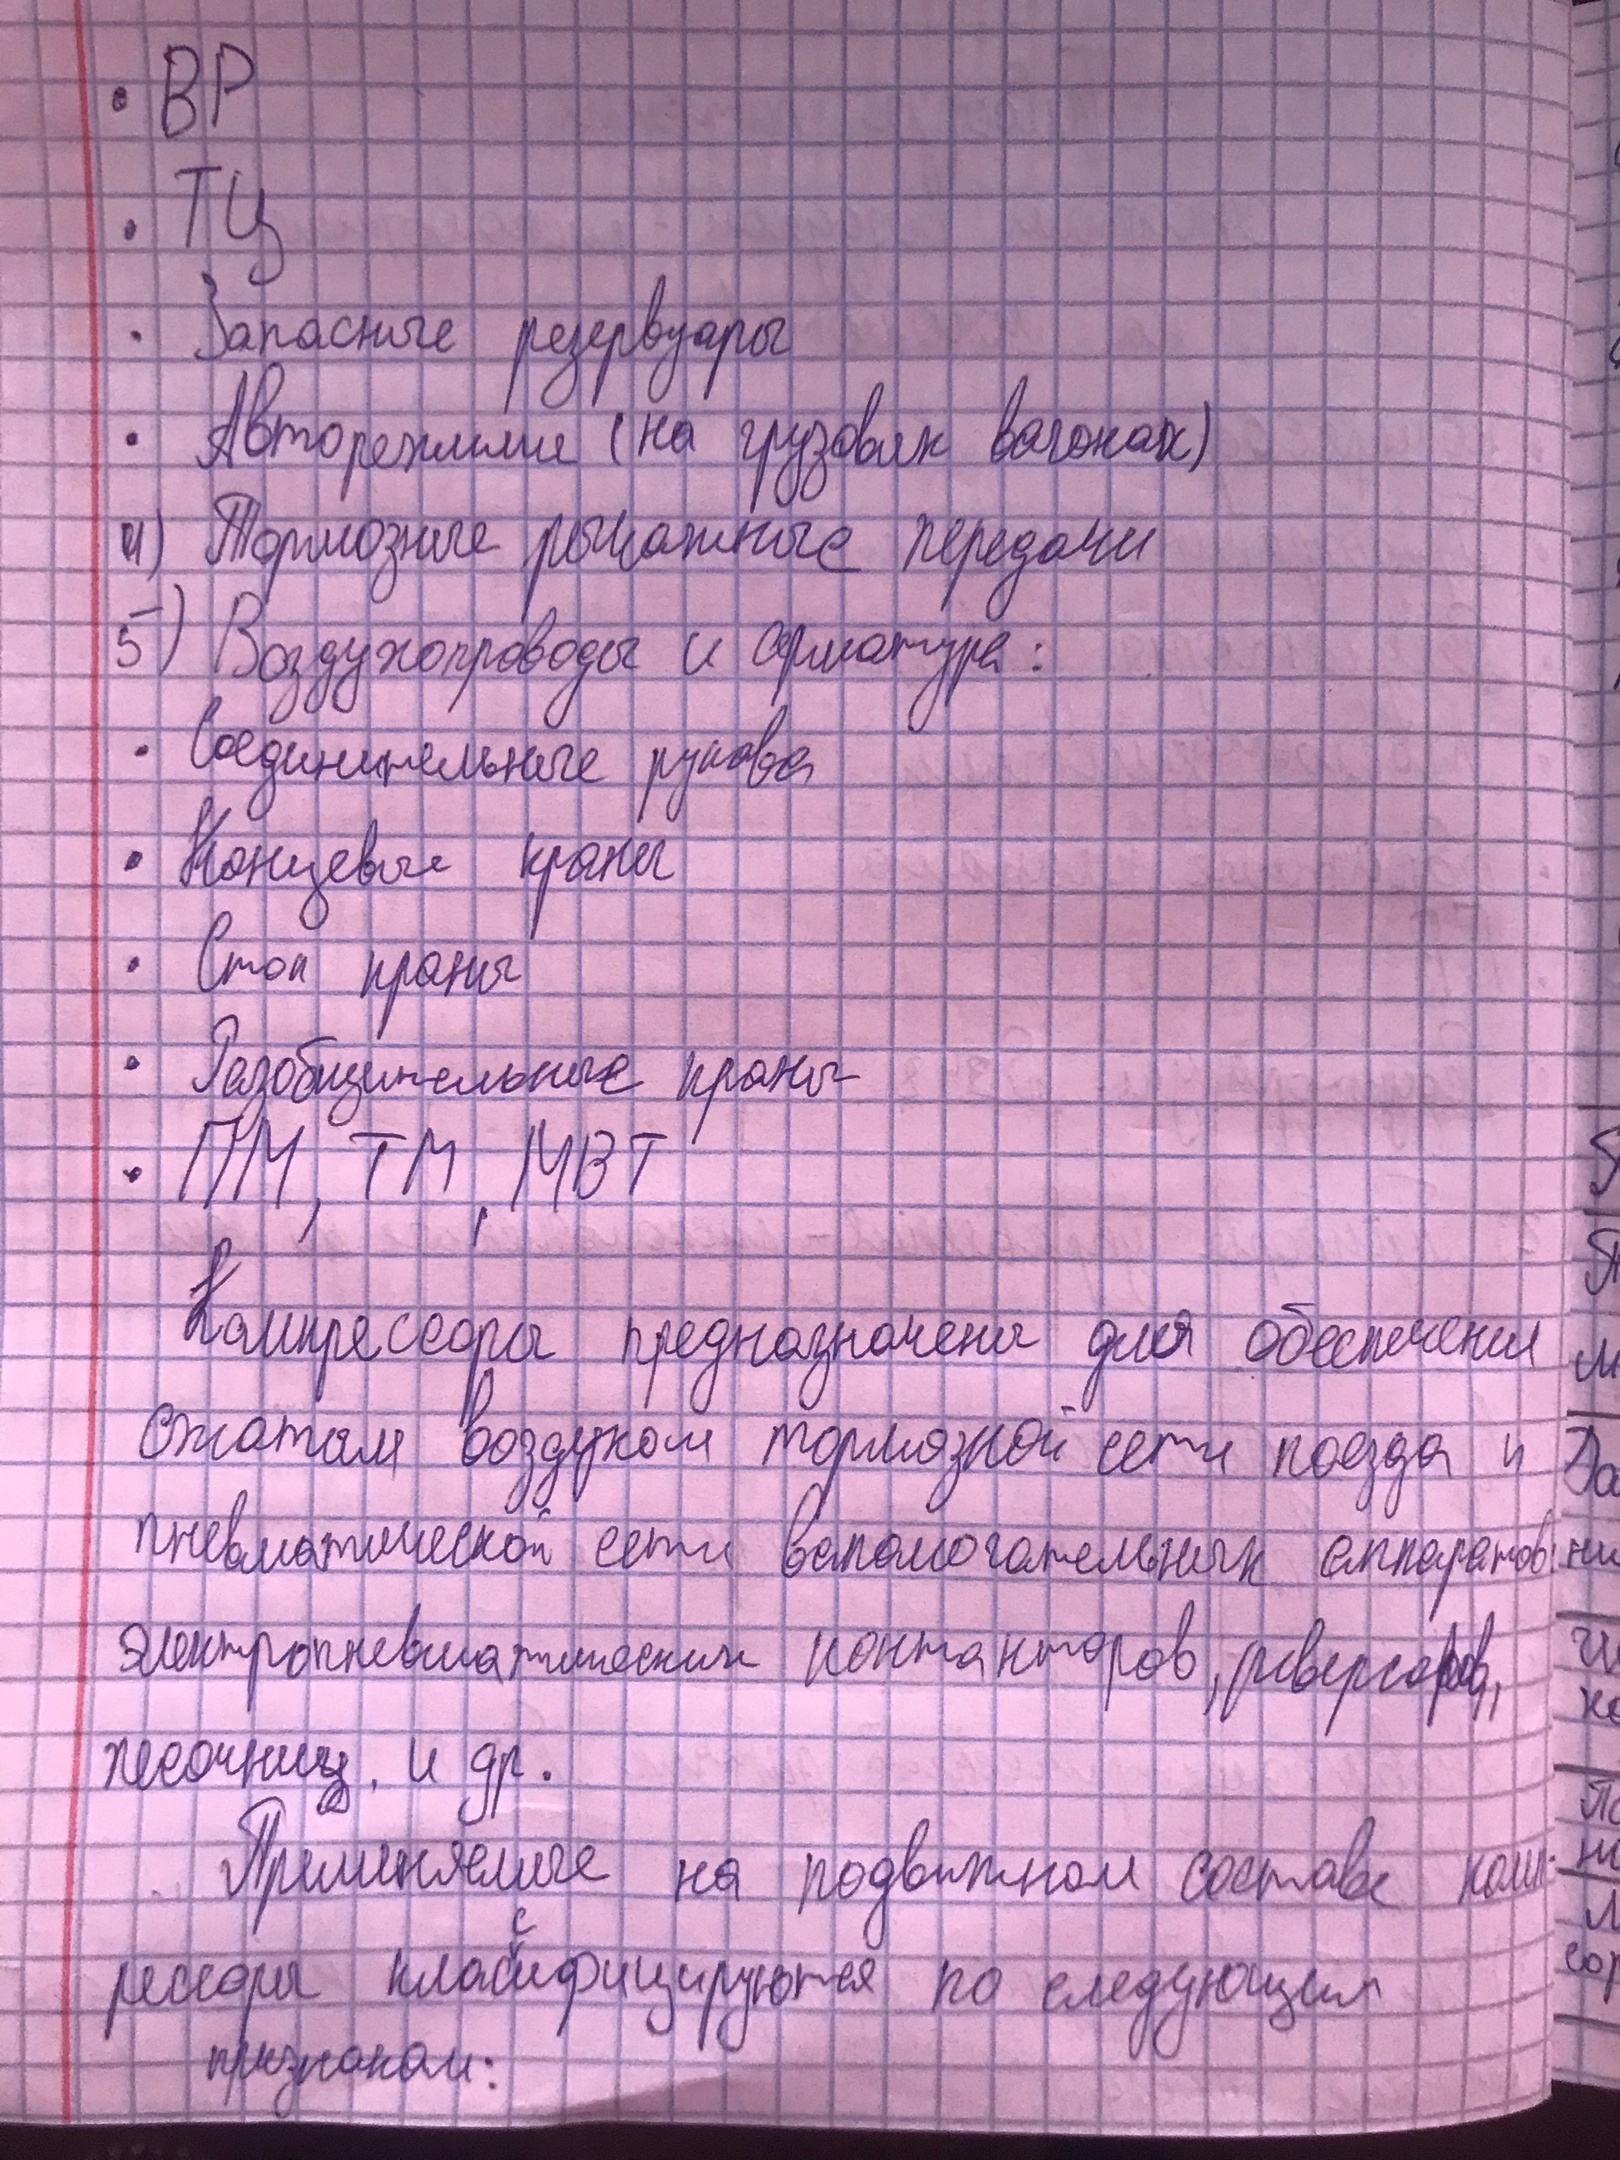 • ВР
• ТЦ
• Запасные резервуары
• Авторежимы (на грузовых вагонах)
4) Тормозные рычажные передачи
5) Воздухопроводы и арматура:
• Соединительные рукава
• Концевые краны
• Стоп краны
• Разобщительные краны
• ПМ, ТМ, МВТ
Компрессоры предназначены для обеспечения
сжатым воздухом тормозной сети поезда и
пневматической сети вспомогательных аппаратов:
электропневматических контакторов, реверсоров,
песочниц. и др.
Применяемые на подвижном составе комп-
рессоры классифицируются по следующим
признакам: